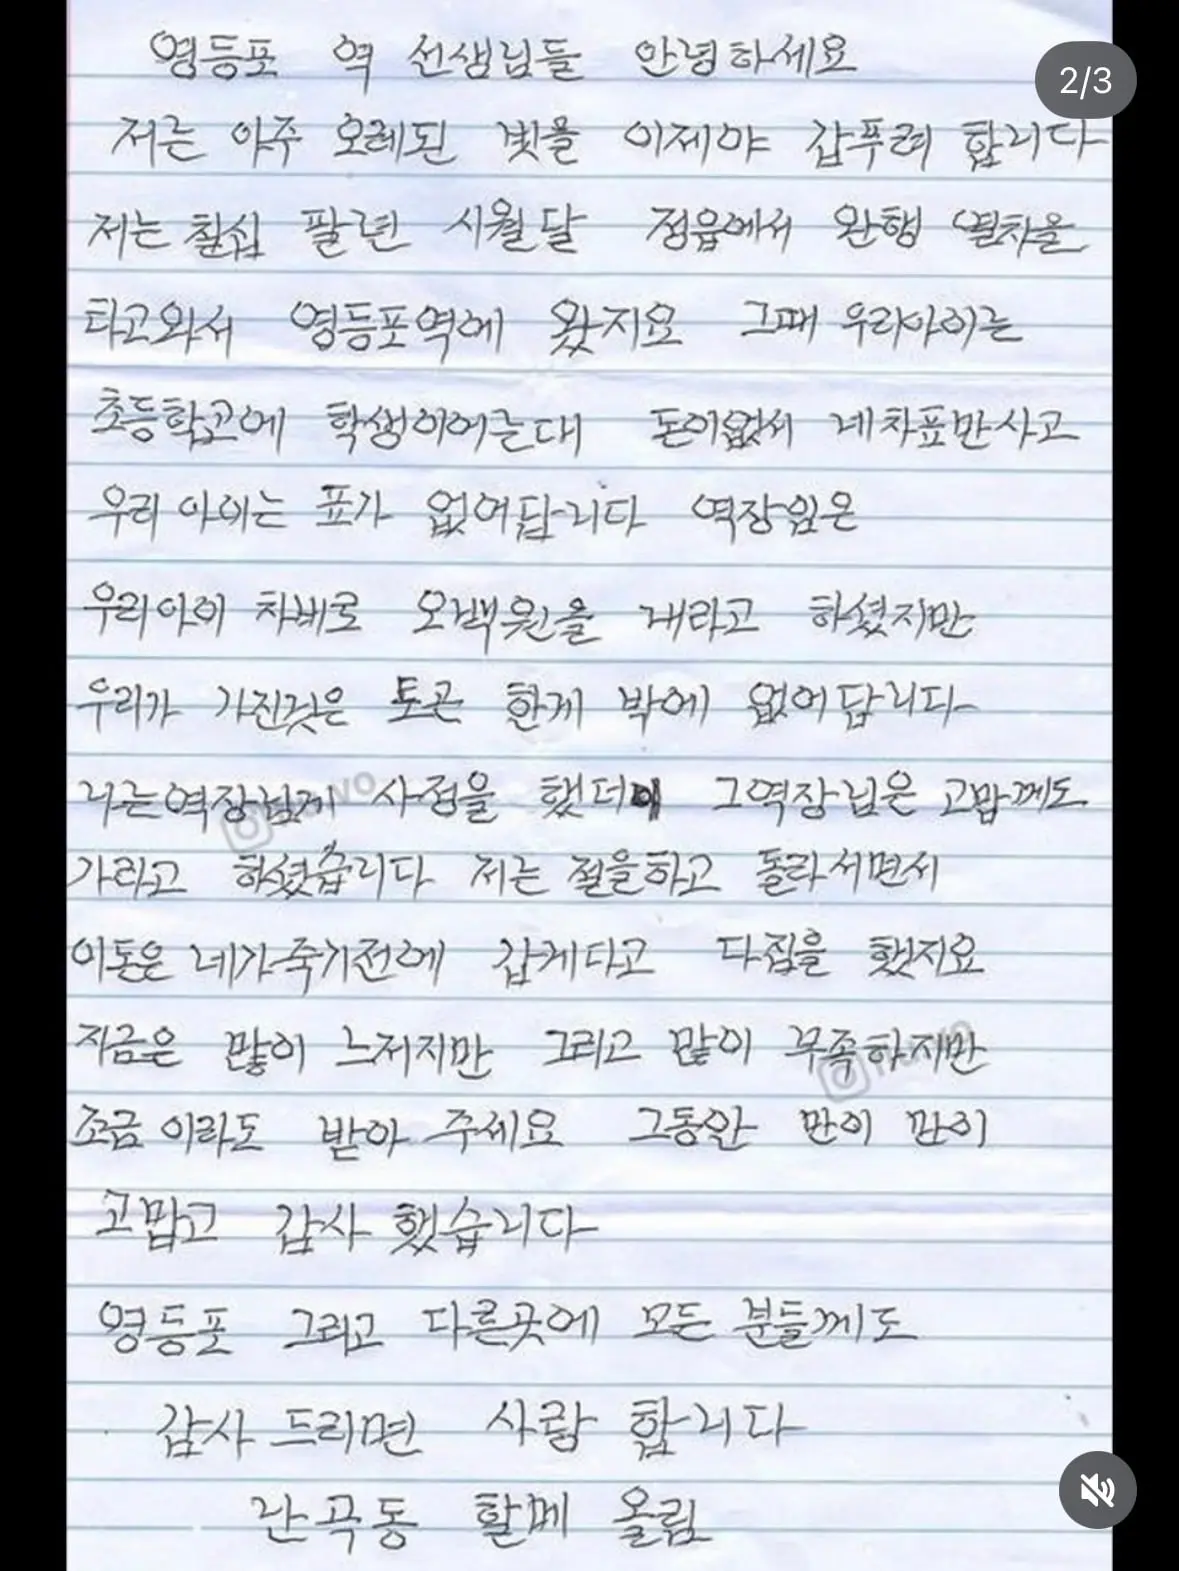 2/3
영등포 역 선생님들 안녕하세요
저는 아주 오레된 빛을 이제야 갑푸려 합니다
저는 칠십 팔년 시월달 정읍에서 완행 열차을
타고와서 영등포역에 왔지요 그때 우리아이는
초등학고에 학생이어는대 돈이없서 네차표만사고
우리 아이는 표가 없어답니다 역장임은
우리아이 차비로 오백원을 내라고 하셨지만
우리가 가진것은 토근 한게 밖에 없어답니다
나는역장님게 사정을 했더이 그역장님은 고맙께도
가라고 하셨습니다 저는 절을하고 돌라서면서
이돈은 네가죽기전에 갑게다고 다짐을 했지요
지금은 많이 느저지만 그리고 많이 부족하지만
조금 이라도 받아 주세요 그동안 만이 만이
고맙고 갑사 했습니다
영등포 그리고 다른곳에 모든 분들께도
감사 드리면 사랑 합니다
난곡동 할메 올림